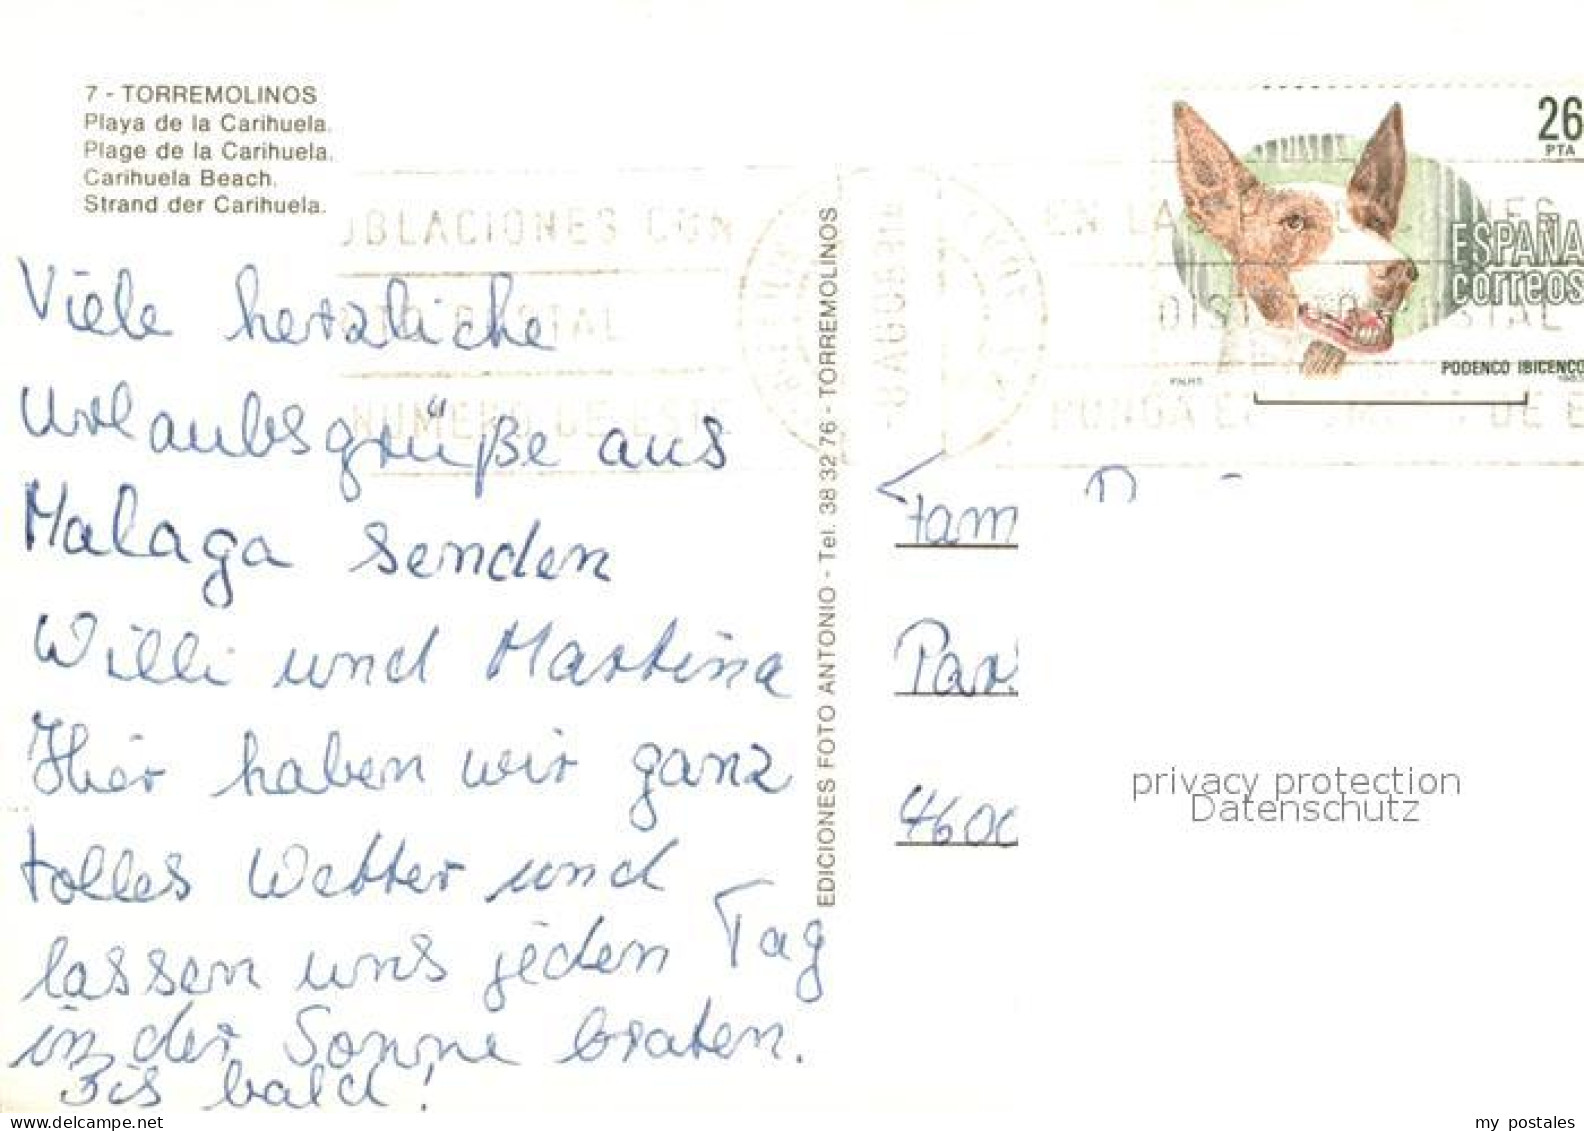 7 - TORREMOLINOS
Playa de la Carihuela.
Plage de la Carihuela.
Carihuela Beach.
Strand der Carihuela.
26
PTA
ESPAÑA
correos
PODENCO IBICENCO
1983
F.N.M.T.
OBLACIONES CON
POSTAL
NUMERO DE ESTE
EN LAS
DISTRITO POSTAL
PONGA EL
DE E
EDICIONES FOTO ANTONIO - Tel. 38 32 76 - TORREMOLINOS
Viele herzliche
Urlaubsgrüße aus
Malaga senden
Willi und Martina
Hier haben wir ganz
tolles Wetter und
lassen uns jeden Tag
in der Sonne braten.
Bis bald!
Fam
Par
4600
privacy protection
Datenschutz
www.delcampe.net
my postales